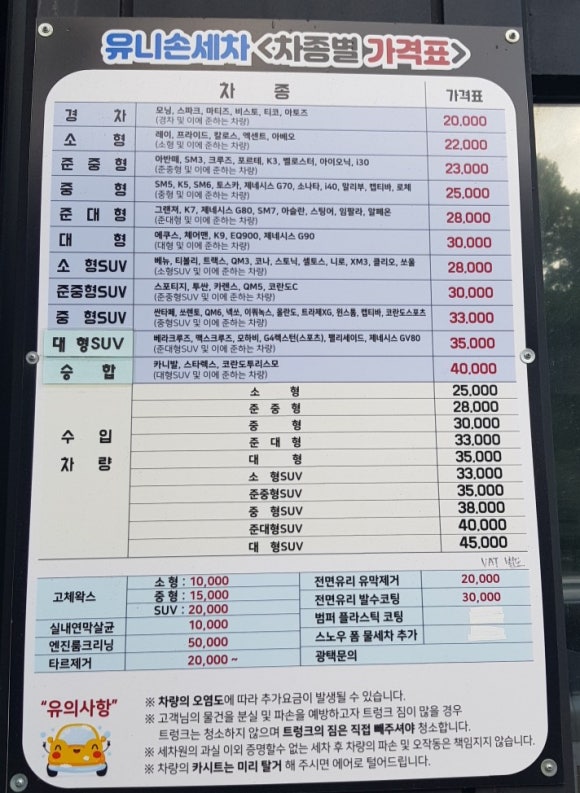 유니손세차 <차종별 가격표>
차 종 가격표
경 차 모닝, 스파크, 마티즈, 비스토, 티코, 아토즈 20,000
(경차 및 이에 준하는 차량)
소 형 레이, 프라이드, 칼로스, 엑센트, 아베오 22,000
(소형 및 이에 준하는 차량)
준 중 형 아반떼, SM3, 크루즈, 포르테, K3, 벨로스터, 아이오닉, i30 23,000
(준중형 및 이에 준하는 차량)
중 형 SM5, K5, SM6, 토스카, 제네시스 G70, 소나타, i40, 말리부, 캡티바, 로체 25,000
(중형 및 이에 준하는 차량)
준 대 형 그랜져, K7, 제네시스 G80, SM7, 아슬란, 스팅어, 임팔라, 알페온 28,000
(준대형 및 이에 준하는 차량)
대 형 에쿠스, 체어맨, K9, EQ900, 제네시스 G90 30,000
(대형 및 이에 준하는 차량)
소 형SUV 베뉴, 티볼리, 트랙스, QM3, 코나, 스토닉, 셀토스, 니로, XM3, 클리오, 쏘울 28,000
(소형SUV 및 이에 준하는 차량)
준중형SUV 스포티지, 투싼, 카렌스, QM5, 코란도C 30,000
(준중형SUV 및 이에 준하는 차량)
중 형SUV 싼타페, 쏘렌토, QM6, 넥쏘, 이쿼녹스, 올란도, 트라제XG, 윈스톰, 캡티바, 코란도스포츠 33,000
(중형SUV 및 이에 준하는 차량)
대 형SUV 베라크루즈, 맥스크루즈, 모하비, G4렉스턴(스포츠), 펠리세이드, 제네시스 GV80 35,000
(준대형SUV 및 이에 준하는 차량)
승 합 카니발, 스타렉스, 코란도투리스모 40,000
(대형SUV 및 이에 준하는 차량)
수 입 차 량
소 형 25,000
준 중 형 28,000
중 형 30,000
준 대 형 33,000
대 형 35,000
소 형SUV 33,000
준중형SUV 35,000
중 형SUV 38,000
준대형SUV 40,000
대 형SUV 45,000
VAT 별도
고체왁스 소 형 : 10,000
중 형 : 15,000
SUV : 20,000
실내연막살균 10,000
엔진룸크리닝 50,000
타르제거 20,000 ~
전면유리 유막제거 20,000
전면유리 발수코팅 30,000
범퍼 플라스틱 코팅
스노우 폼 물세차 추가
광택문의
"유의사항"
※ 차량의 오염도에 따라 추가요금이 발생될 수 있습니다.
※ 고객님의 물건을 분실 및 파손을 예방하고자 트렁크 짐이 많을 경우
트렁크는 청소하지 않으며 트렁크의 짐은 직접 빼주셔야 청소합니다.
※ 세차원의 과실 이외 증명할수 없는 세차 후 차량의 파손 및 오작동은 책임지지 않습니다.
※ 차량의 카시트는 미리 탈거 해 주시면 에어로 털어드립니다.